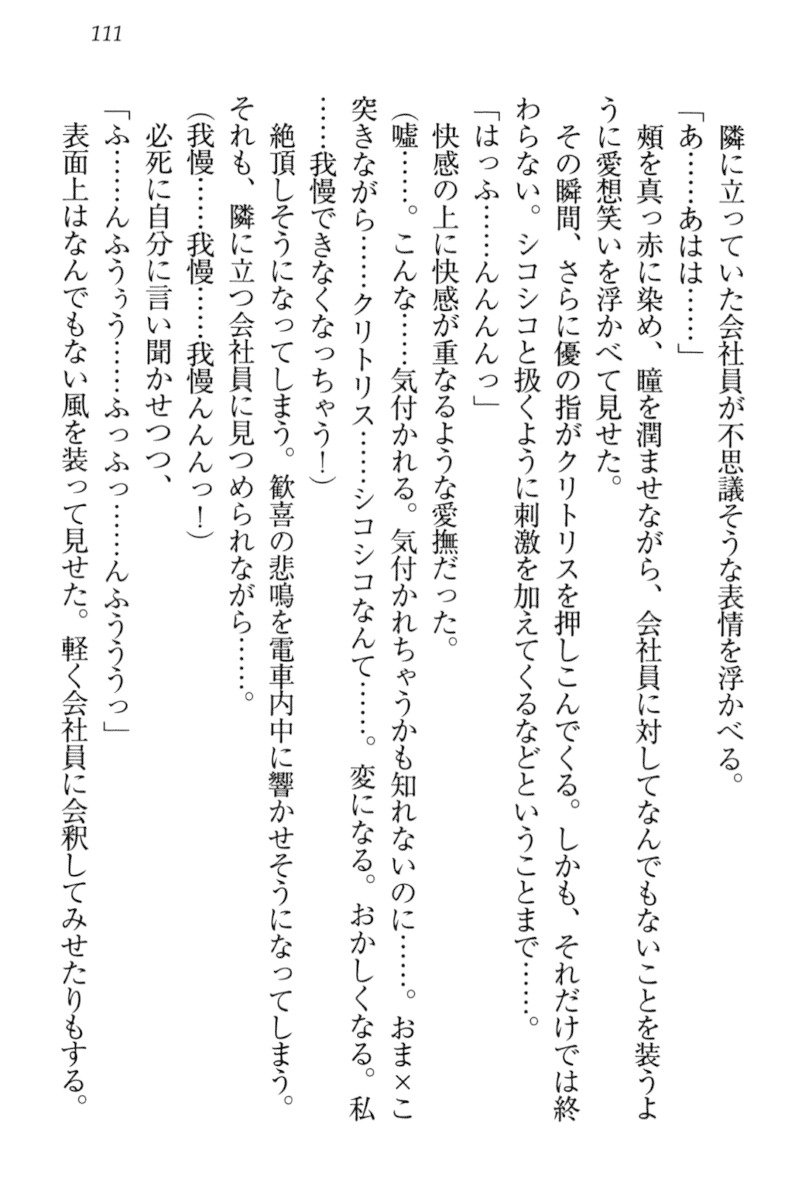 111
隣に立っていた会社員が不思議そうな表情を浮かべる。
「あ……あはは……」
頰を真っ赤に染め、瞳を潤ませながら、会社員に対してなんでもないことを装うよ
うに愛想笑いを浮かべて見せた。
その瞬間、さらに優の指がクリトリスを押しこんでくる。しかも、それだけでは終
わらない。シコシコと扱くように刺激を加えてくるなどということまで……。
「はっふ……んんんんっ」
快感の上に快感が重なるような愛撫だった。
(嘘……。こんな……気付かれる。気付かれちゃうかも知れないのに……。おま×こ
突きながら……クリトリス……シコシコなんて……。変になる。おかしくなる。私
……我慢できなくなっちゃう!)
絶頂しそうになってしまう。歓喜の悲鳴を電車内中に響かせそうになってしまう。
それも、隣に立つ会社員に見つめられながら……。
(我慢……我慢……我慢んんんっ!)
必死に自分に言い聞かせつつ、
「ふ……んふうぅう……ふっふっ……んふううぅっ」
表面上はなんでもない風を装って見せた。軽く会社員に会釈してみせたりもする。